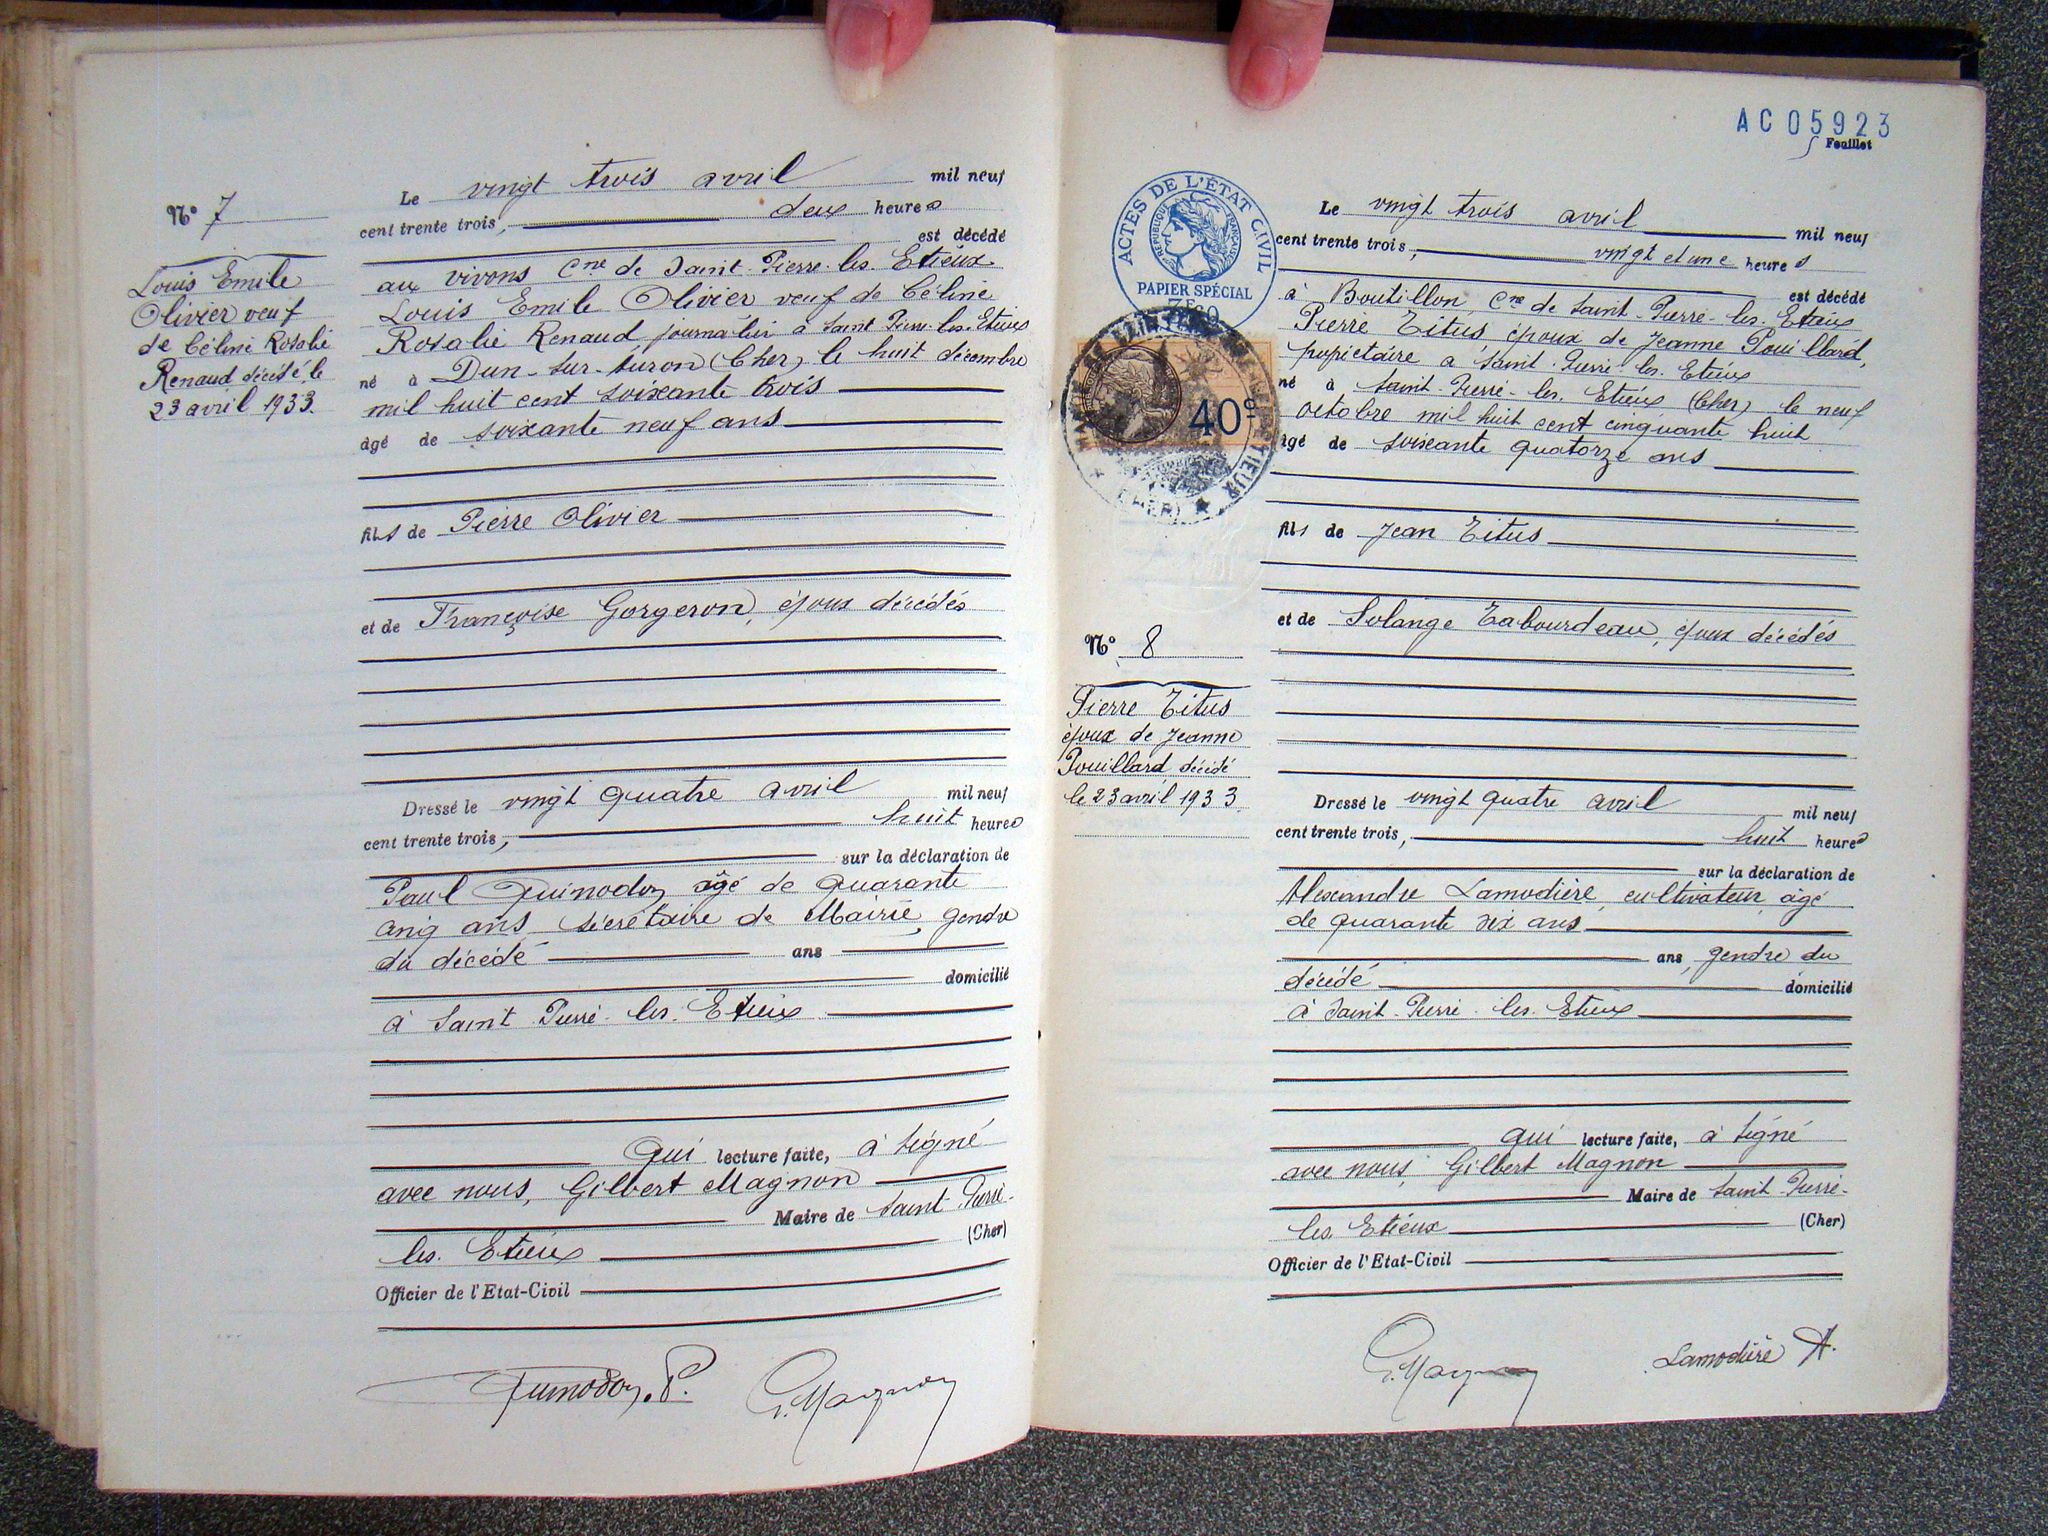 N° 7
Louis Emile
Olivier veuf
de Céline Rosalie
Renaud décédé le
23 avril 1933.
Le vingt trois avril mil neuf
cent trente trois, deux heures
est décédé
aux vivons Cne de Saint-Pierre-les-Etieux
Louis Emile Olivier veuf de Céline
Rosalie Renaud, journalier à Saint-Pierre-les-Etieux
né à Dun-sur-Auron (Cher) le huit décembre
mil huit cent soixante trois
âgé de soixante neuf ans
fils de Pierre Olivier
et de Françoise Gorgeron, époux décédés
Dressé le vingt quatre avril mil neuf
cent trente trois, huit heures
sur la déclaration de
Paul Quinodoz âgé de quarante
cinq ans, secrétaire de Mairie, gendre
du décédé ans
domicilié
à Saint-Pierre-les-Etieux
qui lecture faite, à signé
avec nous, Gilbert Magnon
Maire de Saint-Pierre-
les-Etieux (Cher)
Officier de l'Etat-Civil
Quinodoz.P. G.Magnon
AC05923
Feuillet
ACTES DE L'ÉTAT CIVIL
RÉPUBLIQUE FRANÇAISE
PAPIER SPÉCIAL
40c
(CHER)
N° 8
Pierre Titus
époux de Jeanne
Pouillard décédé
le 23 avril 1933.
Le vingt trois avril mil neuf
cent trente trois, vingt et une heures
est décédé
à Boutillon, Cne de Saint-Pierre-les-Etieux
Pierre Titus époux de Jeanne Pouillard,
propietaire à Saint-Pierre-les-Etieux
né à Saint-Pierre-les-Etieux (Cher) le neuf
octobre mil huit cent cinquante huit
âgé de soixante quatorze ans
fils de Jean Titus
et de Solange Tabourdeau, époux décédés
Dressé le vingt quatre avril mil neuf
cent trente trois, huit heures
sur la déclaration de
Alexandre Lamodière, cultivateur, âgé
de quarante six ans
ans, gendre du
décédé domicilié
à Saint-Pierre-les-Etieux
qui lecture faite, à signé
avec nous, Gilbert Magnon
Maire de Saint-Pierre-
les-Etieux (Cher)
Officier de l'Etat-Civil
G.Magnon Lamodière A.